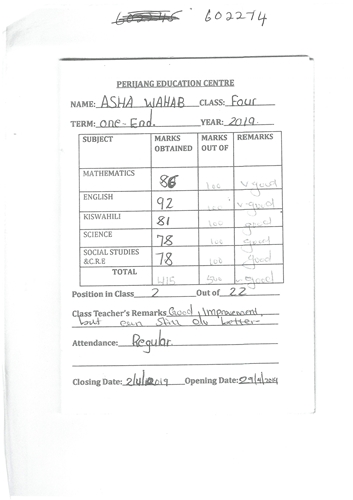 602274 602274
PERIJANG EDUCATION CENTRE
NAME: ASHA WAHAB CLASS: Four
TERM: One-End. YEAR: 2019
SUBJECT MARKS OBTAINED MARKS OUT OF REMARKS
MATHEMATICS 86 100 V good
ENGLISH 92 100 V-good
KISWAHILI 81 100 good
SCIENCE 78 100 good
SOCIAL STUDIES &C.R.E 78 100 good
TOTAL 415 500 good
Position in Class 2 Out of 22
Class Teacher's Remarks Good Improvement
but can Still do better
Attendance: Regular
Closing Date: Opening Date: